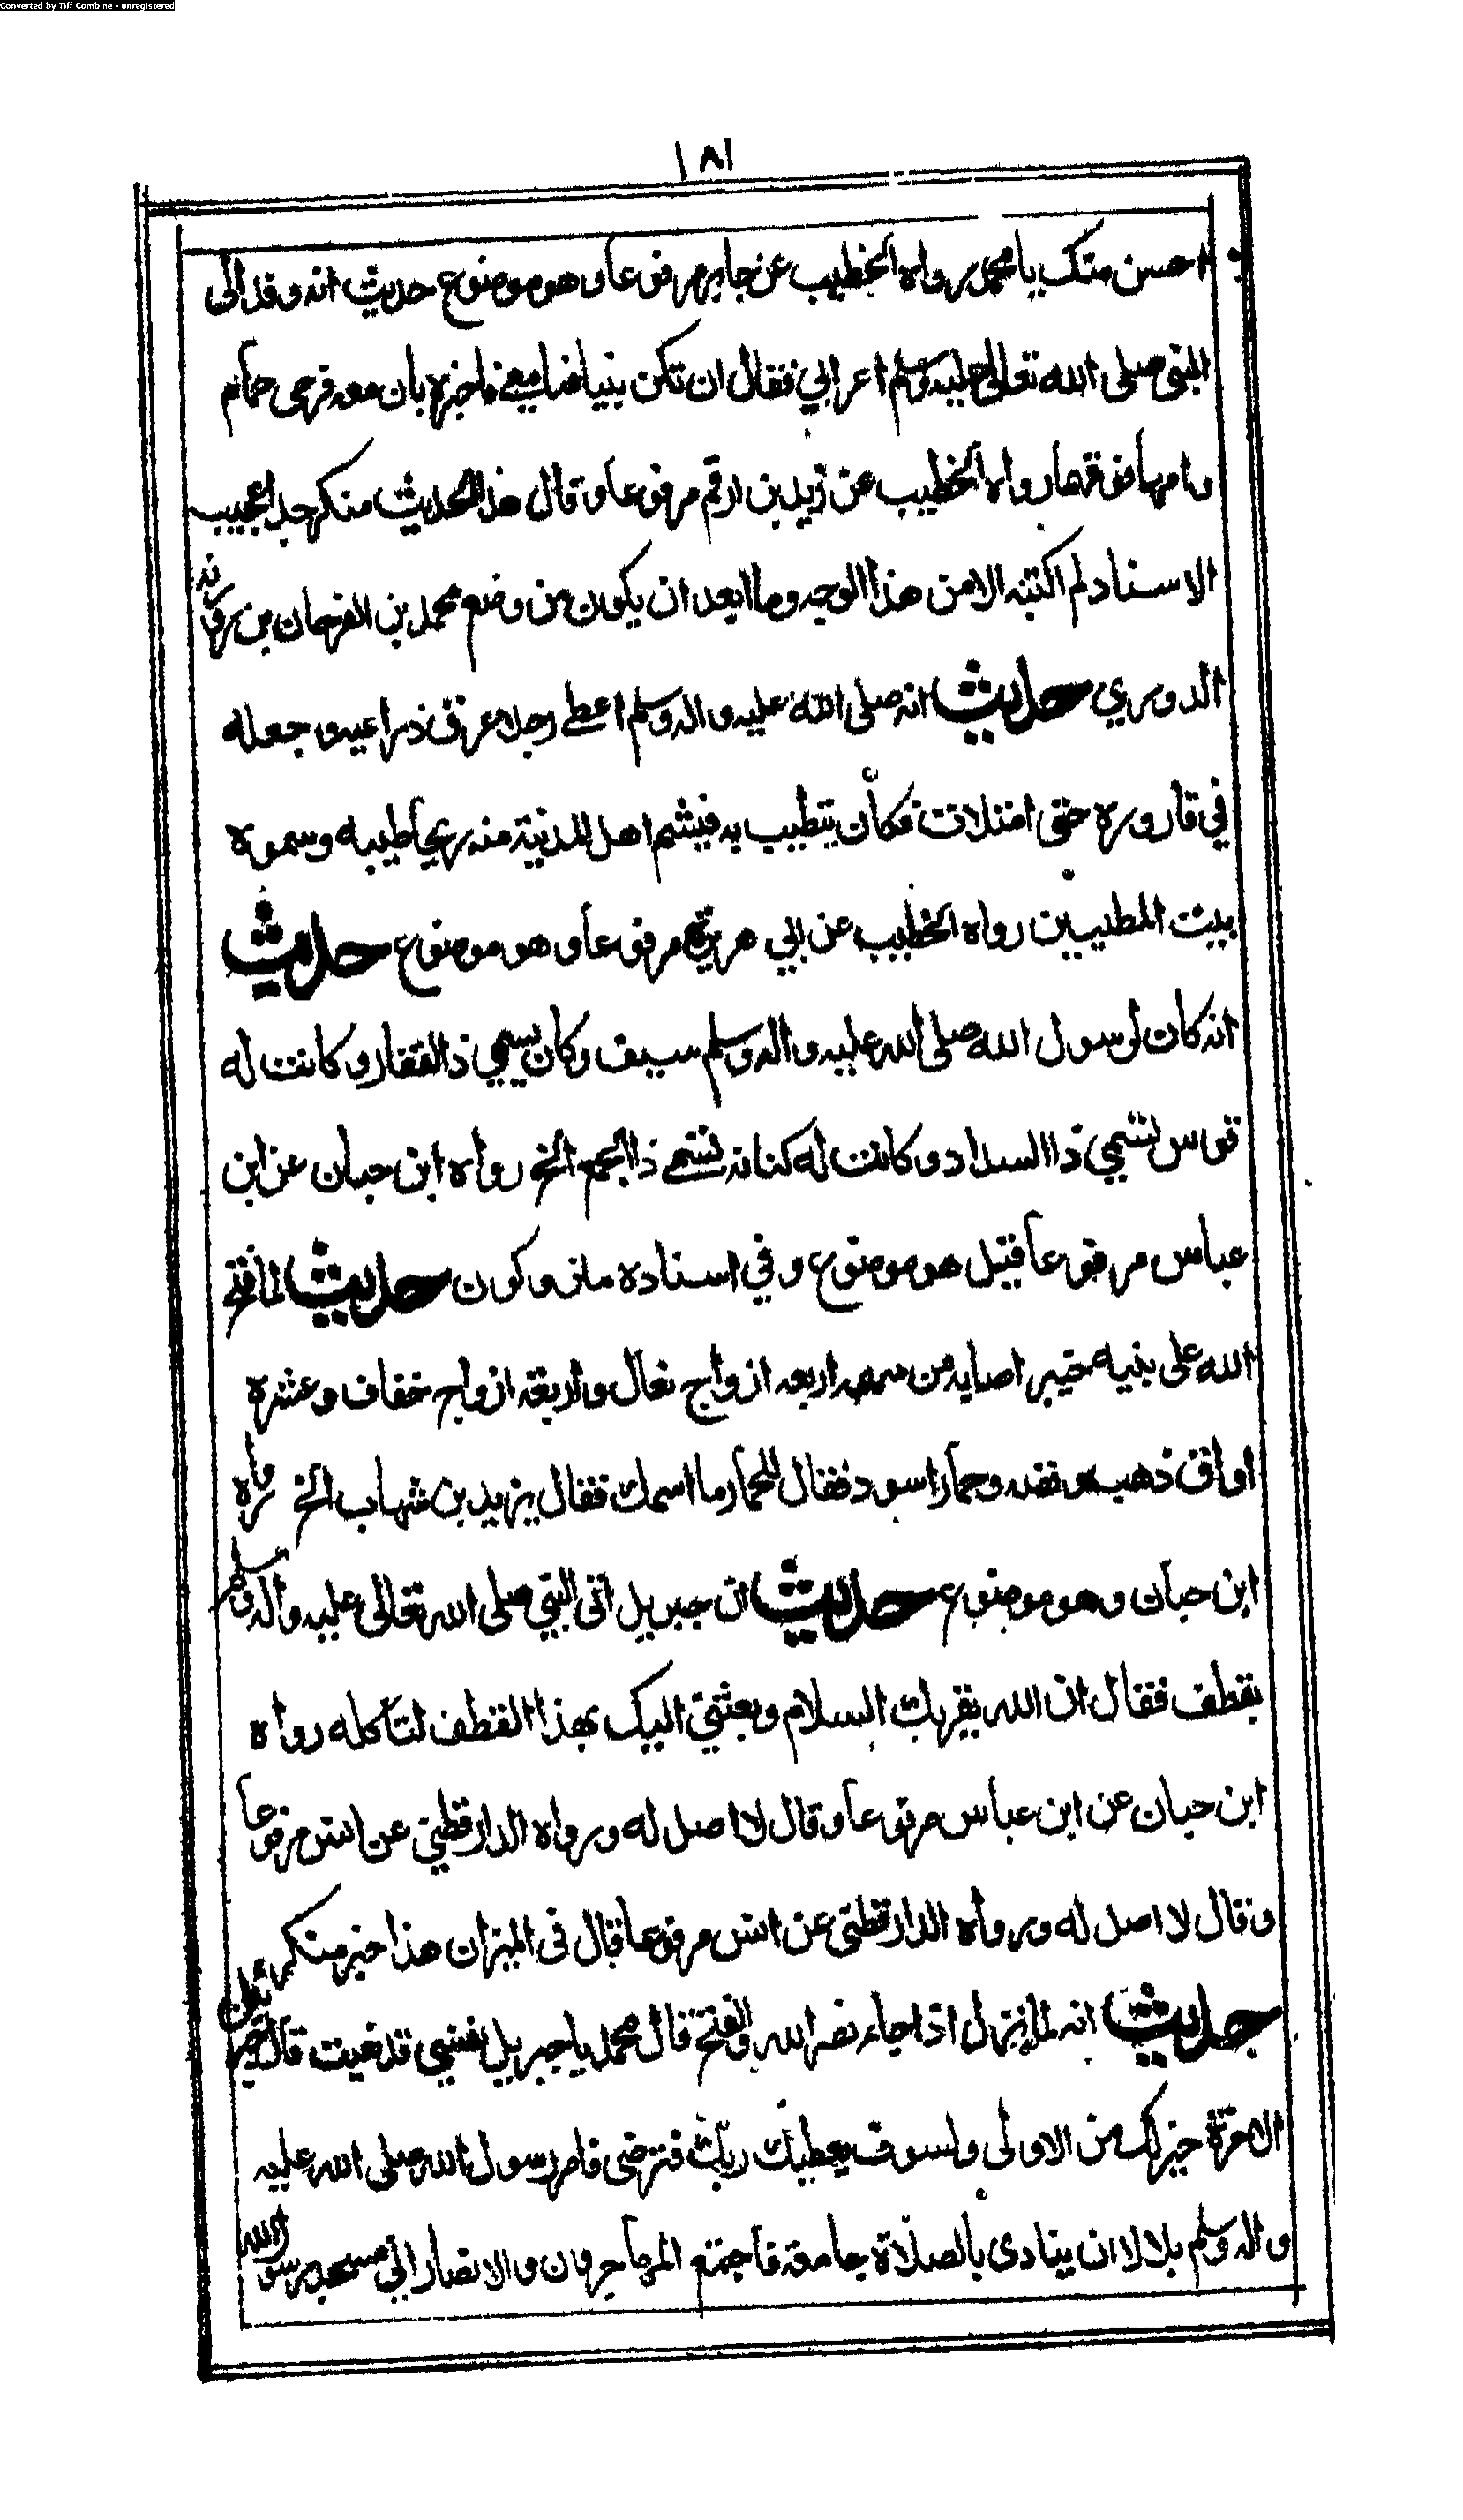 Converted by Tiff Combine - unregistered
١٨١
احسن منك يا محمد رواه الخطيب عن جابر مرفوعا وهو موضوع حديث انه وفد الى
النبي صلى الله تعالى عليه وسلم اعرابي فقال ان تكن نبيا فما معي فاخبره بان معه فرخي حمام
وامهما فوقهما رواه الخطيب عن زيد بن ارقم مرفوعا وقال هذا الحديث منكر جدا عجيب
الاسناد لم اكتبه الا من هذا الوجه وما ابعد ان يكون من وضع محمد بن الفرخان بن روزبه
الدوري حديث انه صلى الله عليه واله وسلم اعطى رجلا عرق ذراعيه وجعله
في قارورة حتى امتلات فكان يتطيب به فيشم اهل المدينة منه ريحا طيبه وسموه
بيت المطيبين رواه الخطيب عن ابي هريرة مرفوعا وهو موضوع حديث
انه كان لرسول الله صلى الله عليه واله وسلم سيف وكان يسمى ذا الفقار وكانت له
قوس تسمى ذا السداد وكانت له كنانه تسمى ذا الجمع الخ رواه ابن حبان عن ابن
عباس مرفوعا قيل هو موضوع وفي اسناده متروكون حديث لما فتح
الله على نبيه خيبر اصابه من سهمه اربعه ازواج نعال واربعة ازواج خفاف وعشرة
اواق ذهب وفضه وحمارا اسود فقال للحمار ما اسمك فقال يزيد بن شهاب الخ رواه
ابن حبان وهو موضوع حديث ان جبريل اتى النبي صلى الله تعالى عليه واله وسلم
بقطف فقال ان الله يقربك السلام وبعثني اليك بهذا القطف لتاكله رواه
ابن حبان عن ابن عباس مرفوعا وقال لا اصل له ورواه الدارقطني عن انس مرفوعا
وقال لا اصل له ورواه الدارقطني عن انس مرفوعا قال في الميزان هذا خبر منكر
حديث انه لما نزل اذا جاء نصر الله والفتح قال محمد يا جبريل نفسي قد نعيت قال جبريل
الاخرة خير لك من الاولى ولسوف يعطيك ربك فترضى فامر رسول الله صلى الله عليه
واله وسلم بلالا ان ينادى بالصلاة جامعة فاجتمع المهاجرون والانصار الى مسجد رسول الله